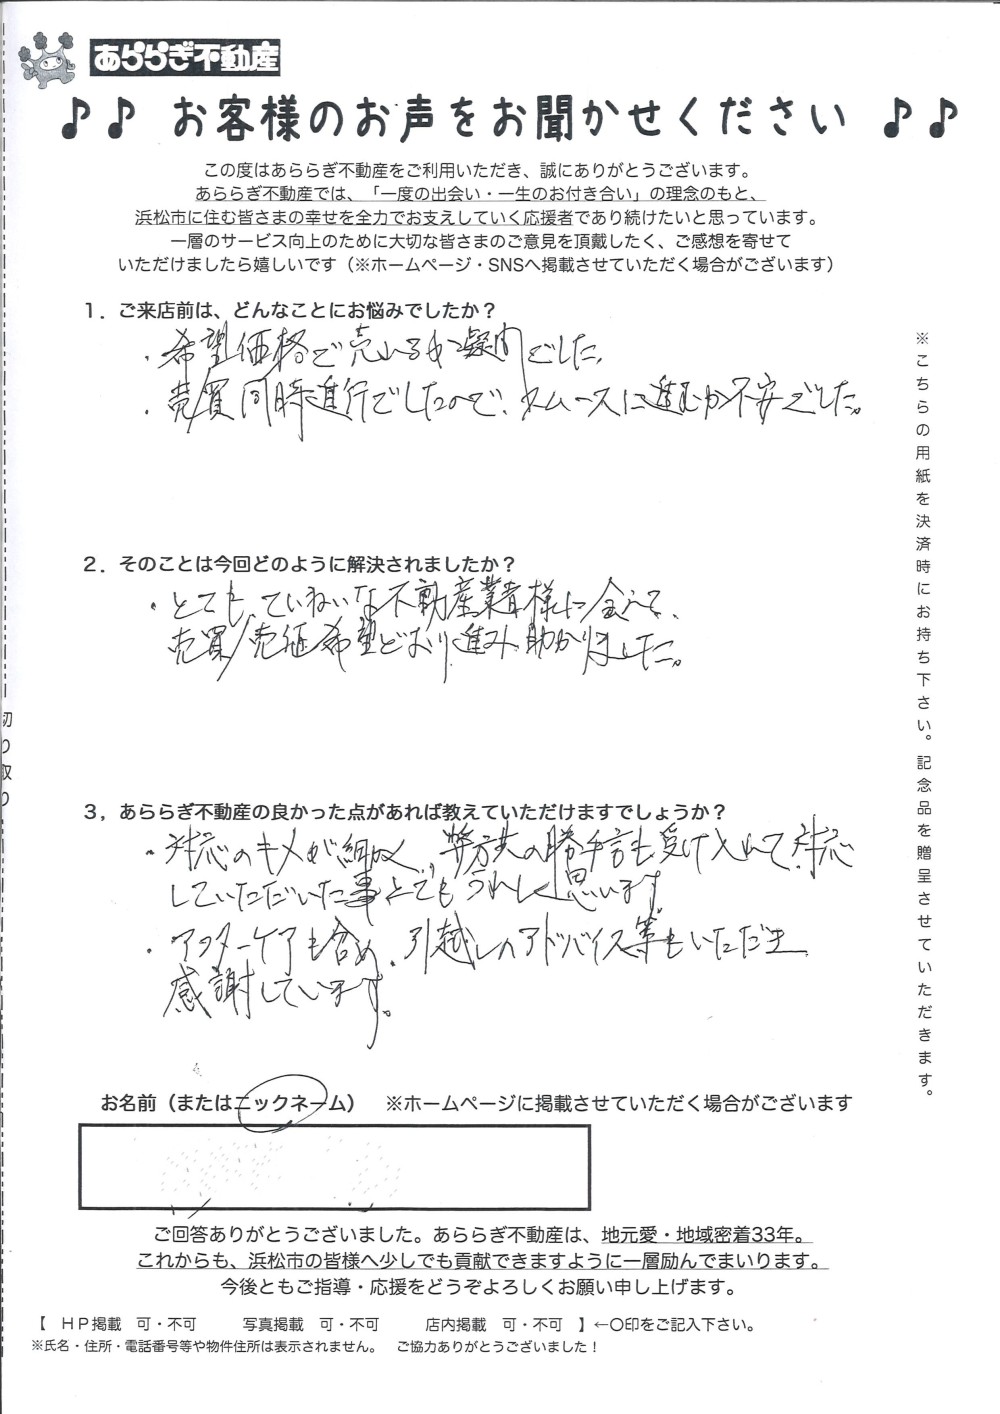 あららぎ不動産
♪♪ お客様のお声をお聞かせください ♪♪
この度はあららぎ不動産をご利用いただき、誠にありがとうございます。
あららぎ不動産では、「一度の出会い・一生のお付き合い」の理念のもと、
浜松市に住む皆さまの幸せを全力でお支えしていく応援者であり続けたいと思っています。
一層のサービス向上のために大切な皆さまのご意見を頂戴したく、ご感想を寄せて
いただけましたら嬉しいです（※ホームページ・SNSへ掲載させていただく場合がございます）
1．ご来店前は、どんなことにお悩みでしたか？
・希望価格で売れるか疑問でした。
・売買同時進行でしたので、スムースに進むか不安でした。
2．そのことは今回どのように解決されましたか？
・とても、ていねいな不動産業者様に会えて、
売買／売征希望どおり進み、助かりました。
3，あららぎ不動産の良かった点があれば教えていただけますでしょうか？
・対応のキメが細かく、当方共の勝手言も受け入れて対応
していただいた事とてもうれしく思います。
・アフターケアも含め、引越しのアドバイス等もいただき
感謝しています。
お名前（またはニックネーム）　※ホームページに掲載させていただく場合がございます
ご回答ありがとうございました。あららぎ不動産は、地元愛・地域密着33年。
これからも、浜松市の皆様へ少しでも貢献できますように一層励んでまいります。
今後ともご指導・応援をどうぞよろしくお願い申し上げます。
【　HP掲載　可・不可　　写真掲載　可・不可　　店内掲載　可・不可　】←〇印をご記入下さい。
※氏名・住所・電話番号等や物件住所は表示されません。　ご協力ありがとうございました！
※こちらの用紙を決済時にお持ち下さい。記念品を贈呈させていただきます。
切り取り